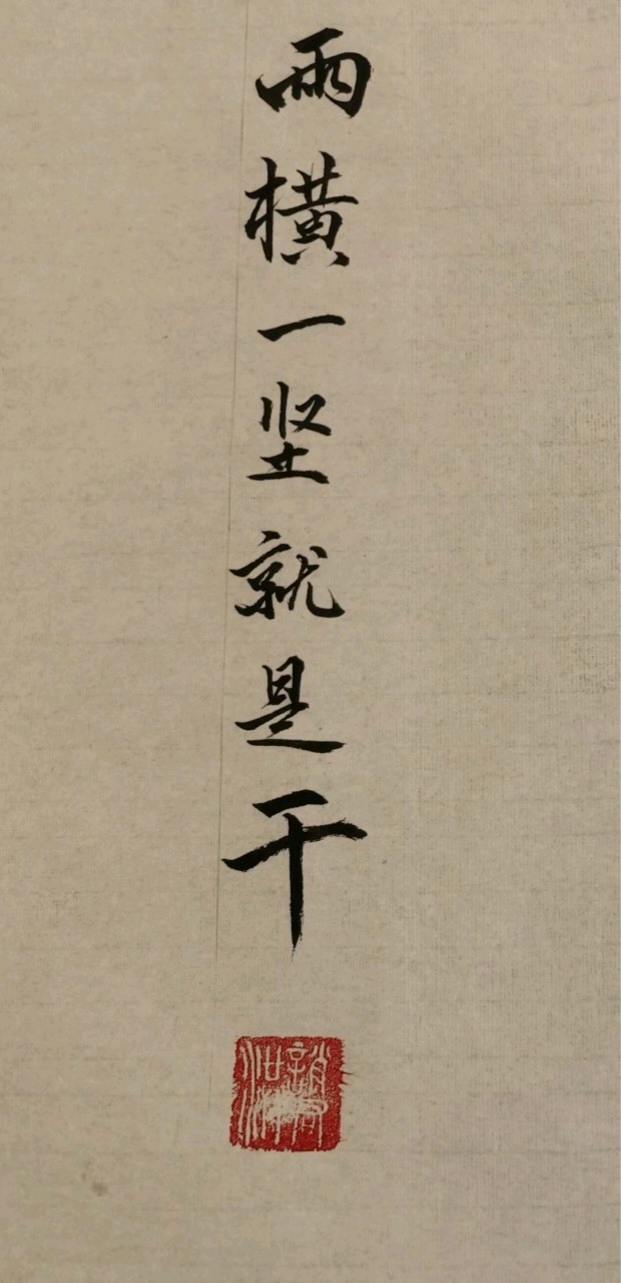 兩横一竖就是干